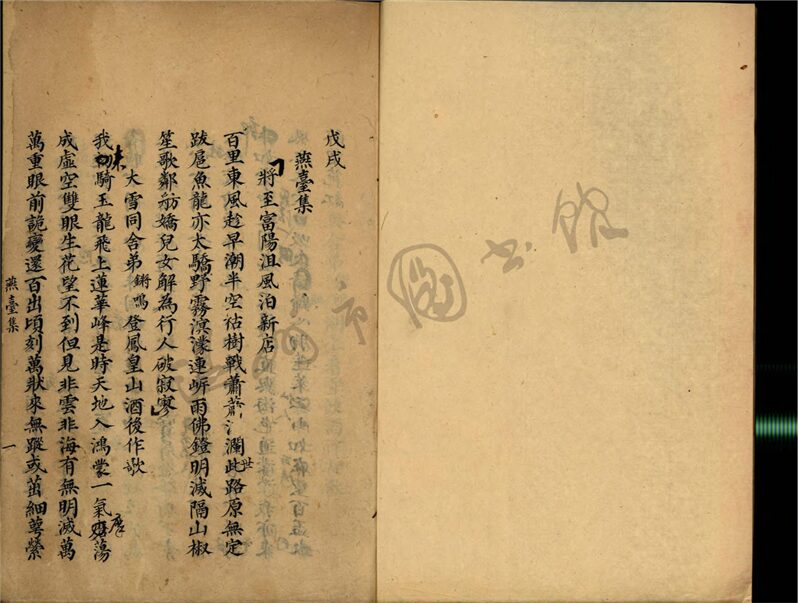 戊戌
燕臺集
將至富陽沮風泊新店
百里東風趁早潮半空祜樹戰蕭蕭 瀾此路原無定
世
跋扈魚龍亦太驕野霧溟濛連岸雨佛鐙明滅隔山椒
笙歌鄰舫嬌兒女解為行人破寂寥
大雪同舍弟鏘鳴登鳳皇山酒後作歌
未
我初騎玉龍飛上蓮華峰是時天地入鴻蒙一氣 蕩
唐
成虛空雙眼生花望不到但見非雲非海有無明滅萬
萬重眼前詭變還百出頃刻萬狀來無蹤或茁細萼縈
燕臺集
一
圖書館